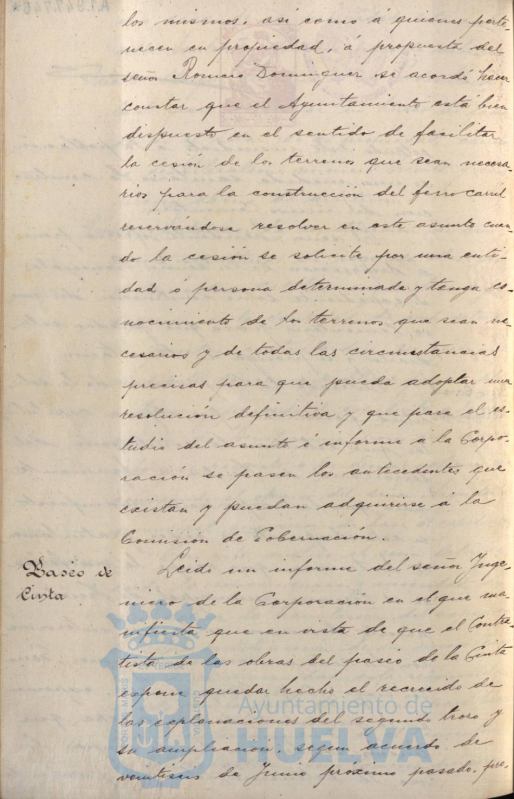 los mismos, así como á quienes perte-
necen en propiedad, á propuesta del
señor Romero Dominguez se acordó hacer
constar que el Ayuntamiento está bien
dispuesto en el sentido de facilitar
la cesión de los terrenos que sean necesa-
rios para la construcción del ferro carril
reservándose resolver en este asunto cuan-
do la cesión se solicite por una enti-
dad ó persona determinada y tenga co-
nocimiento de los terrenos que sean ne-
cesarios y de todas las circunstancias
precisas para que pueda adoptar una
resolución definitiva y que para el es-
tudio del asunto é informe a la Corpo-
ración se pasen los antecedentes que
existan y puedan adquirirse á la
Comisión de Gobernación.
Paseo de
Cinta
Leido un informe del señor Inge-
niero de la Corporación en el que ma-
nifiesta que en vista de que el Contra-
tista de las obras del paseo de la Cinta
expone quedar hecho el recrecido de
las explanaciones del segundo trozo y
su ampliación, segun acuerdo de
veintiseis de Junio próximo pasado, pre-
Ayuntamiento de
HUELVA